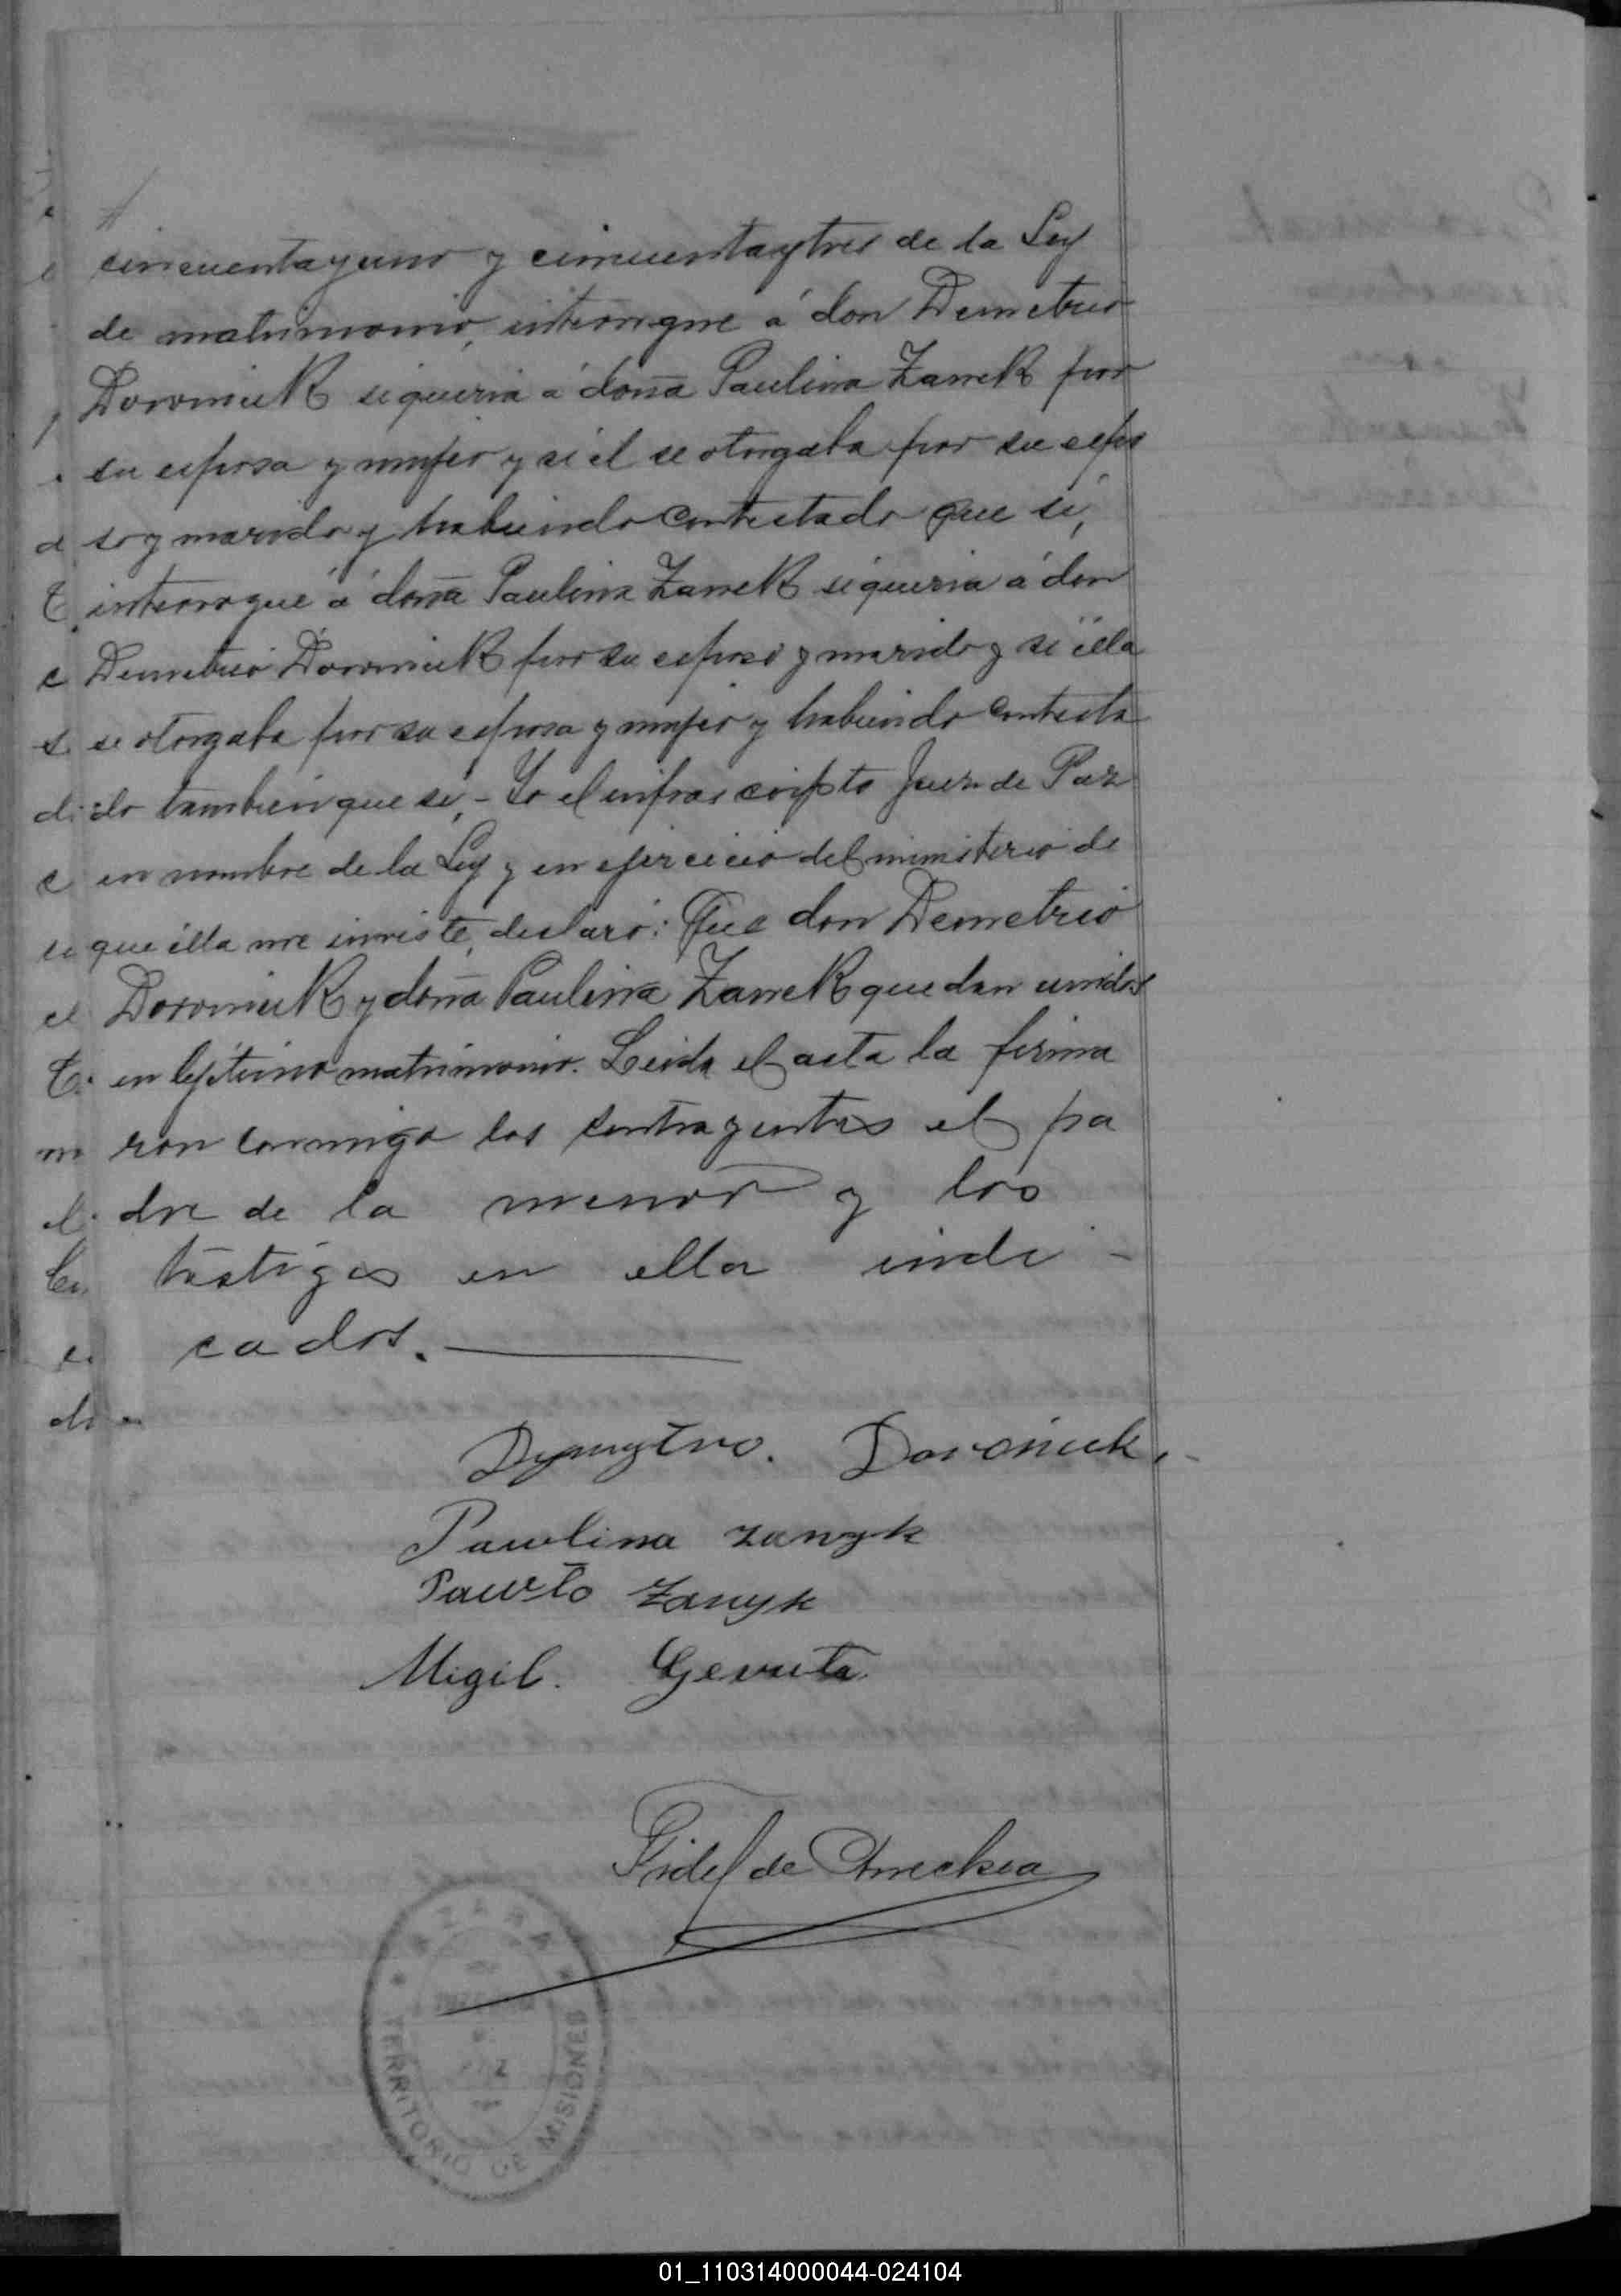 cincuentayuno y cincuentaytres de la Ley
de matrimonio, interrogue á don Demetrio
Doroniuk si queria a doña Paulina Zaneck por
su esposa y mujer y si el se otorgaba por su espo
so y marido y habiendo contestado que si,
interrogué á doña Paulina Zaneck si queria á don
Demetrio Doroniuk por su esposo y marido y si ella
se otorgaba por su esposa y mujer y habiendo contesta
do tambien que si, - Yo el infrascripto Juez de Paz
en nombre de la Ley y en ejercicio del ministerio de
que ella me inviste, declaro: Que don Demetrio
Doroniuk y doña Paulina Zaneck quedan unidos
en lejitimo matrimonio. Leida el acta la firma
ron conmigo los contrayentes el pa
dre de la menor y los
testigos en ella indi -
cados.
Dymytro. Doroniuk.
Pawlina Zanyk
Pawlo Zanyk
Migil. Gevuta.
Fidel de
AZARA
TERRITORIO DE MISIONES
01_110314000044-024104